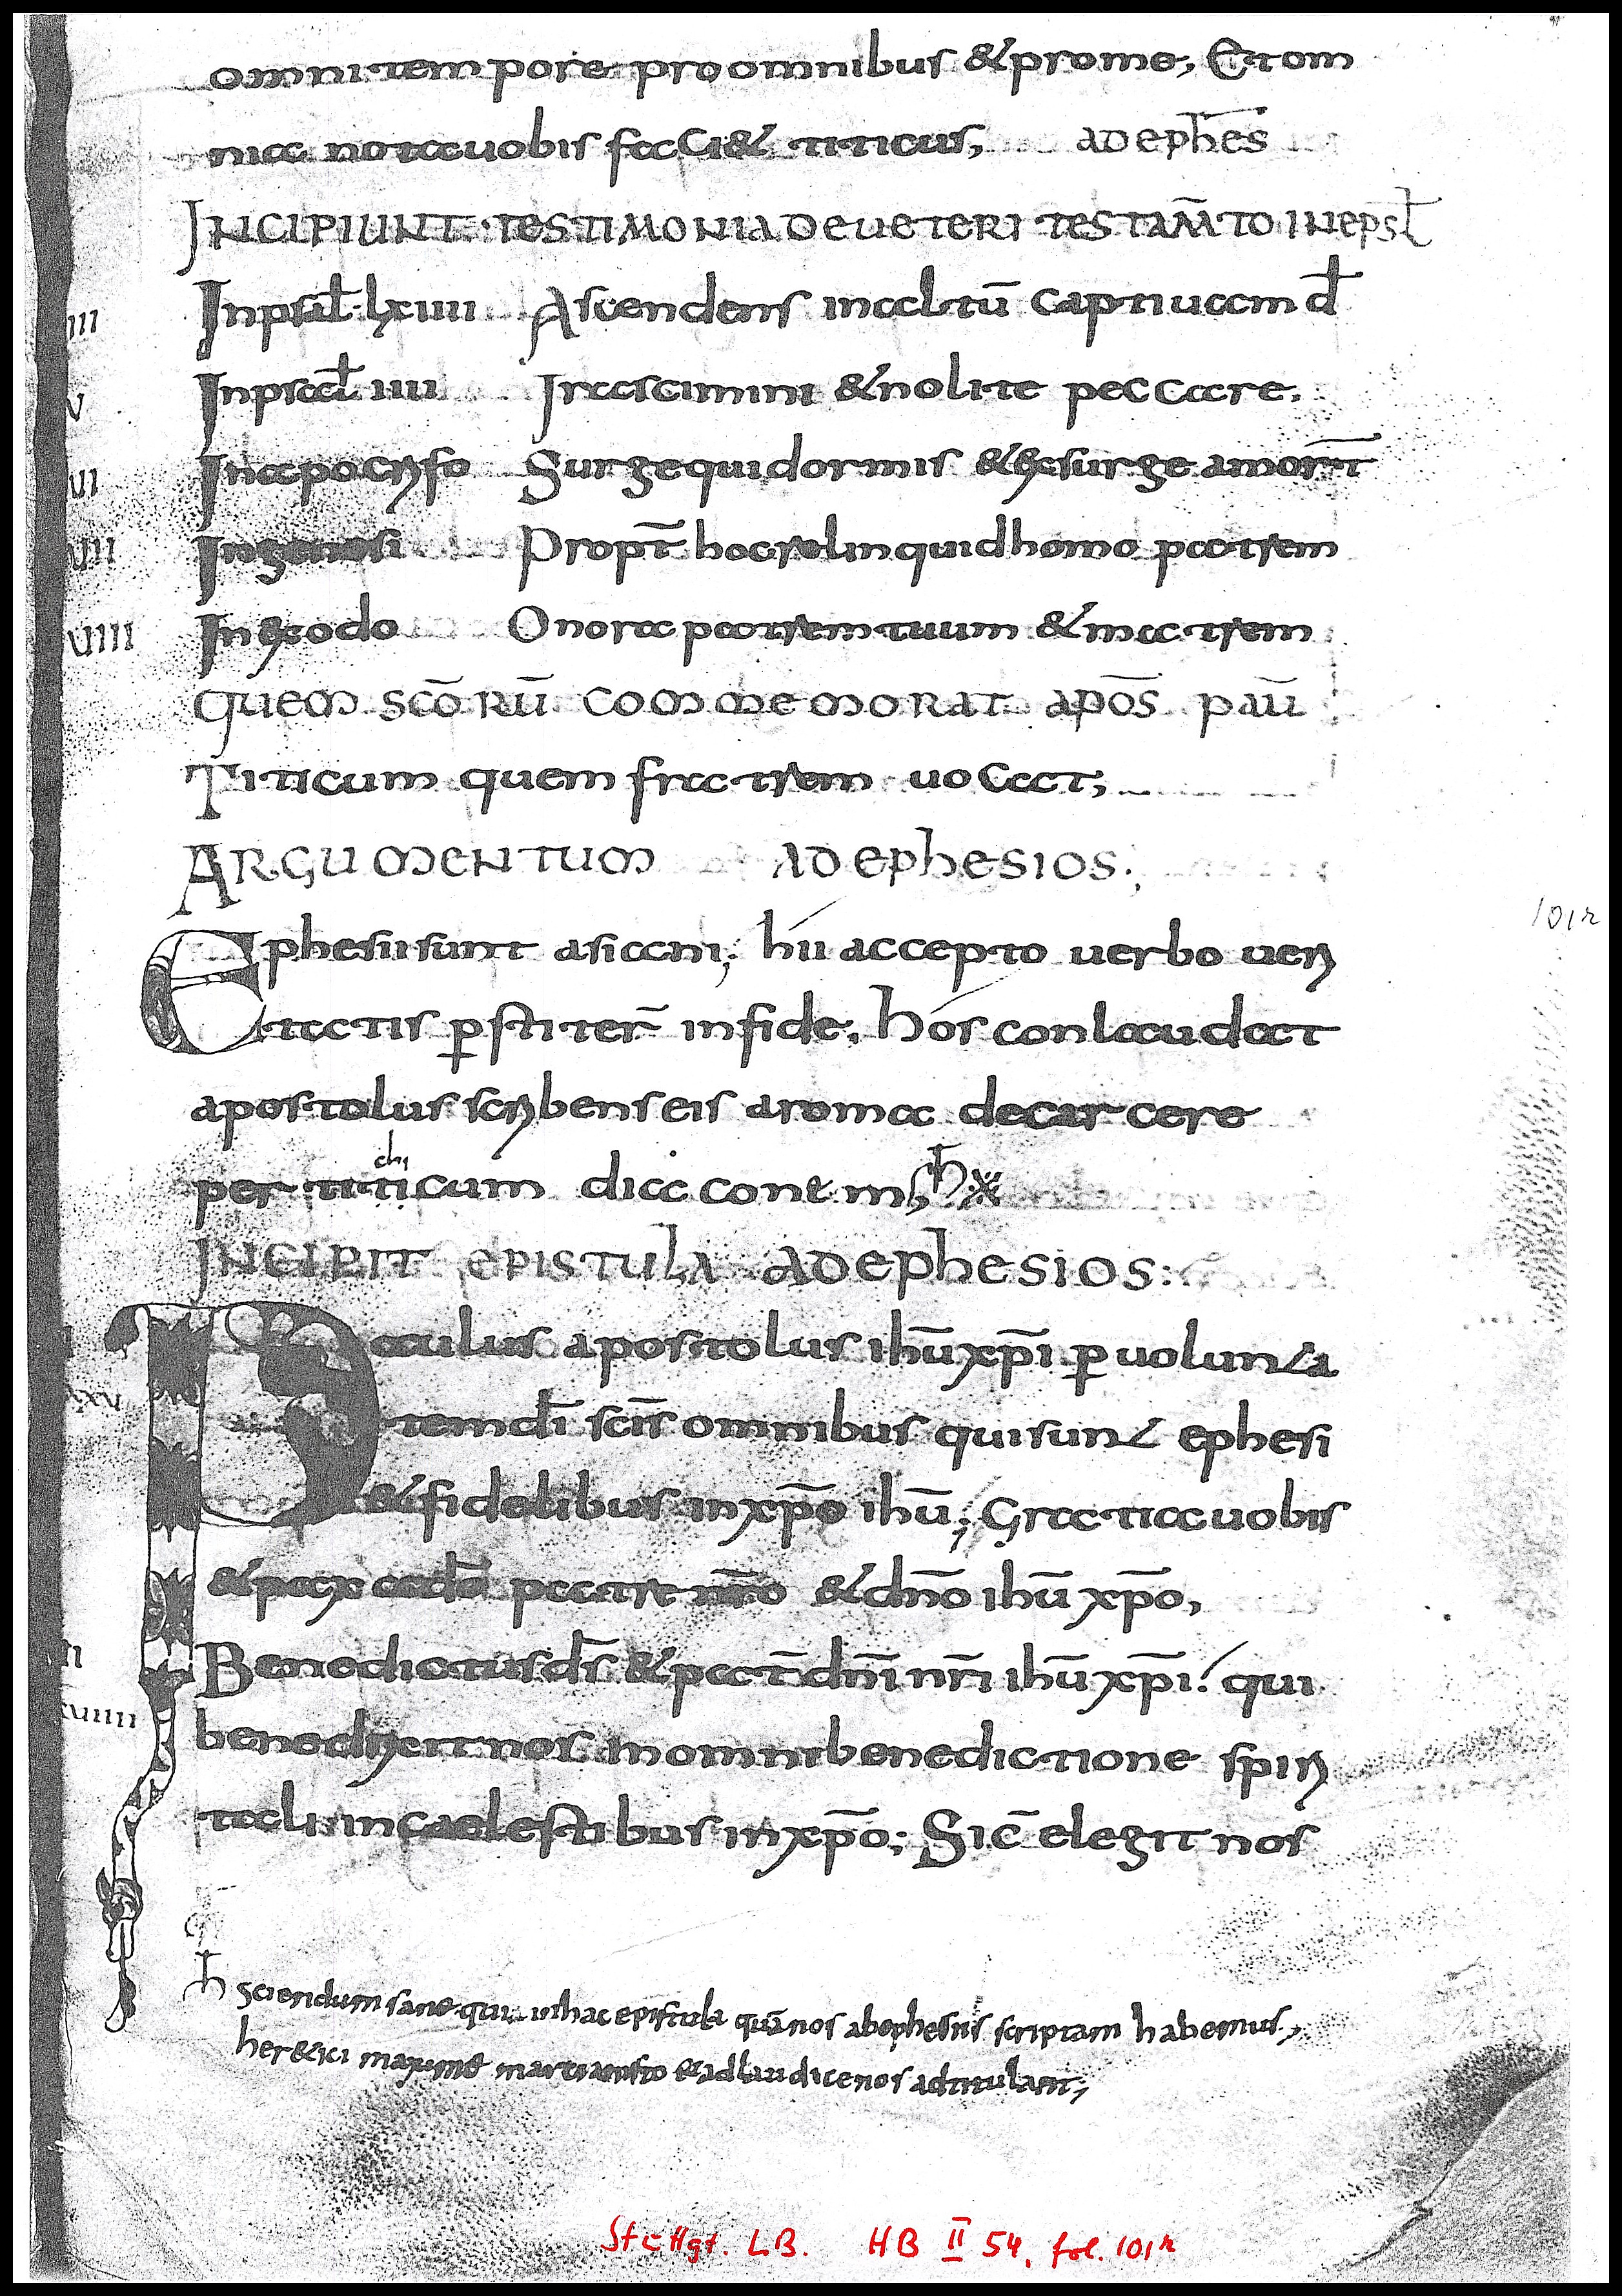 omni tempore pro omnibus & pro me; Et om
nia nota uobis faci& titicus; AD EPHES̄
INCIPIUNT TESTIMONIA DE UETERI TESTAM̄TO IN EPSL̄
III In psal̄ lxiiii Ascendens in altū captiuam d̄
V In psal̄ iiii Irascimini & nolite peccare.
VI In apocrifo Surge qui dormis & exsurge a mort̄
VII In genesi Propt̄ hoc relinquid homo patrem
VIIII In exodo Onora patrem tuum & matrem
QUEM SC̄ORŪ COMMEMORAT APOS̄ PAŪ
Titicum quem fratrem uocat;
ARGUMENTUM AD EPHESIOS;
Ephesii sunt asiani; hii accepto uerbo ueri
tatis ꝑstiter̄ in fide. hos conlaudat
apostolus scribens eis a roma de carcere
chi
per titicum diaconem;
INCIPIT EPISTULA AD EPHESIOS:
Paulus apostolus ihū xp̄i ꝑ uolunta
XXV
tem dī sc̄is omnibus qui sunt ephesi
& fidelibus in xp̄o ihū; Gratia uobis
& pax a dō patre nr̄o & dn̄o ihū xp̄o,
Benedictus ds̄ & pat̄ dn̄i nr̄i ihū xp̄i. qui
benedixit nos in omni benedictione spiri
tali in caelestibus in xp̄o; Sic̄ elegit nos
ħ Sciendum sane qui in hac epistula quā nos ab ephesiis scriptam habemus,
her&ici maxime marcionisto & ad laudicenos adtitulant;
101r
Stuttgt. LB. HB II 54, fol. 101r